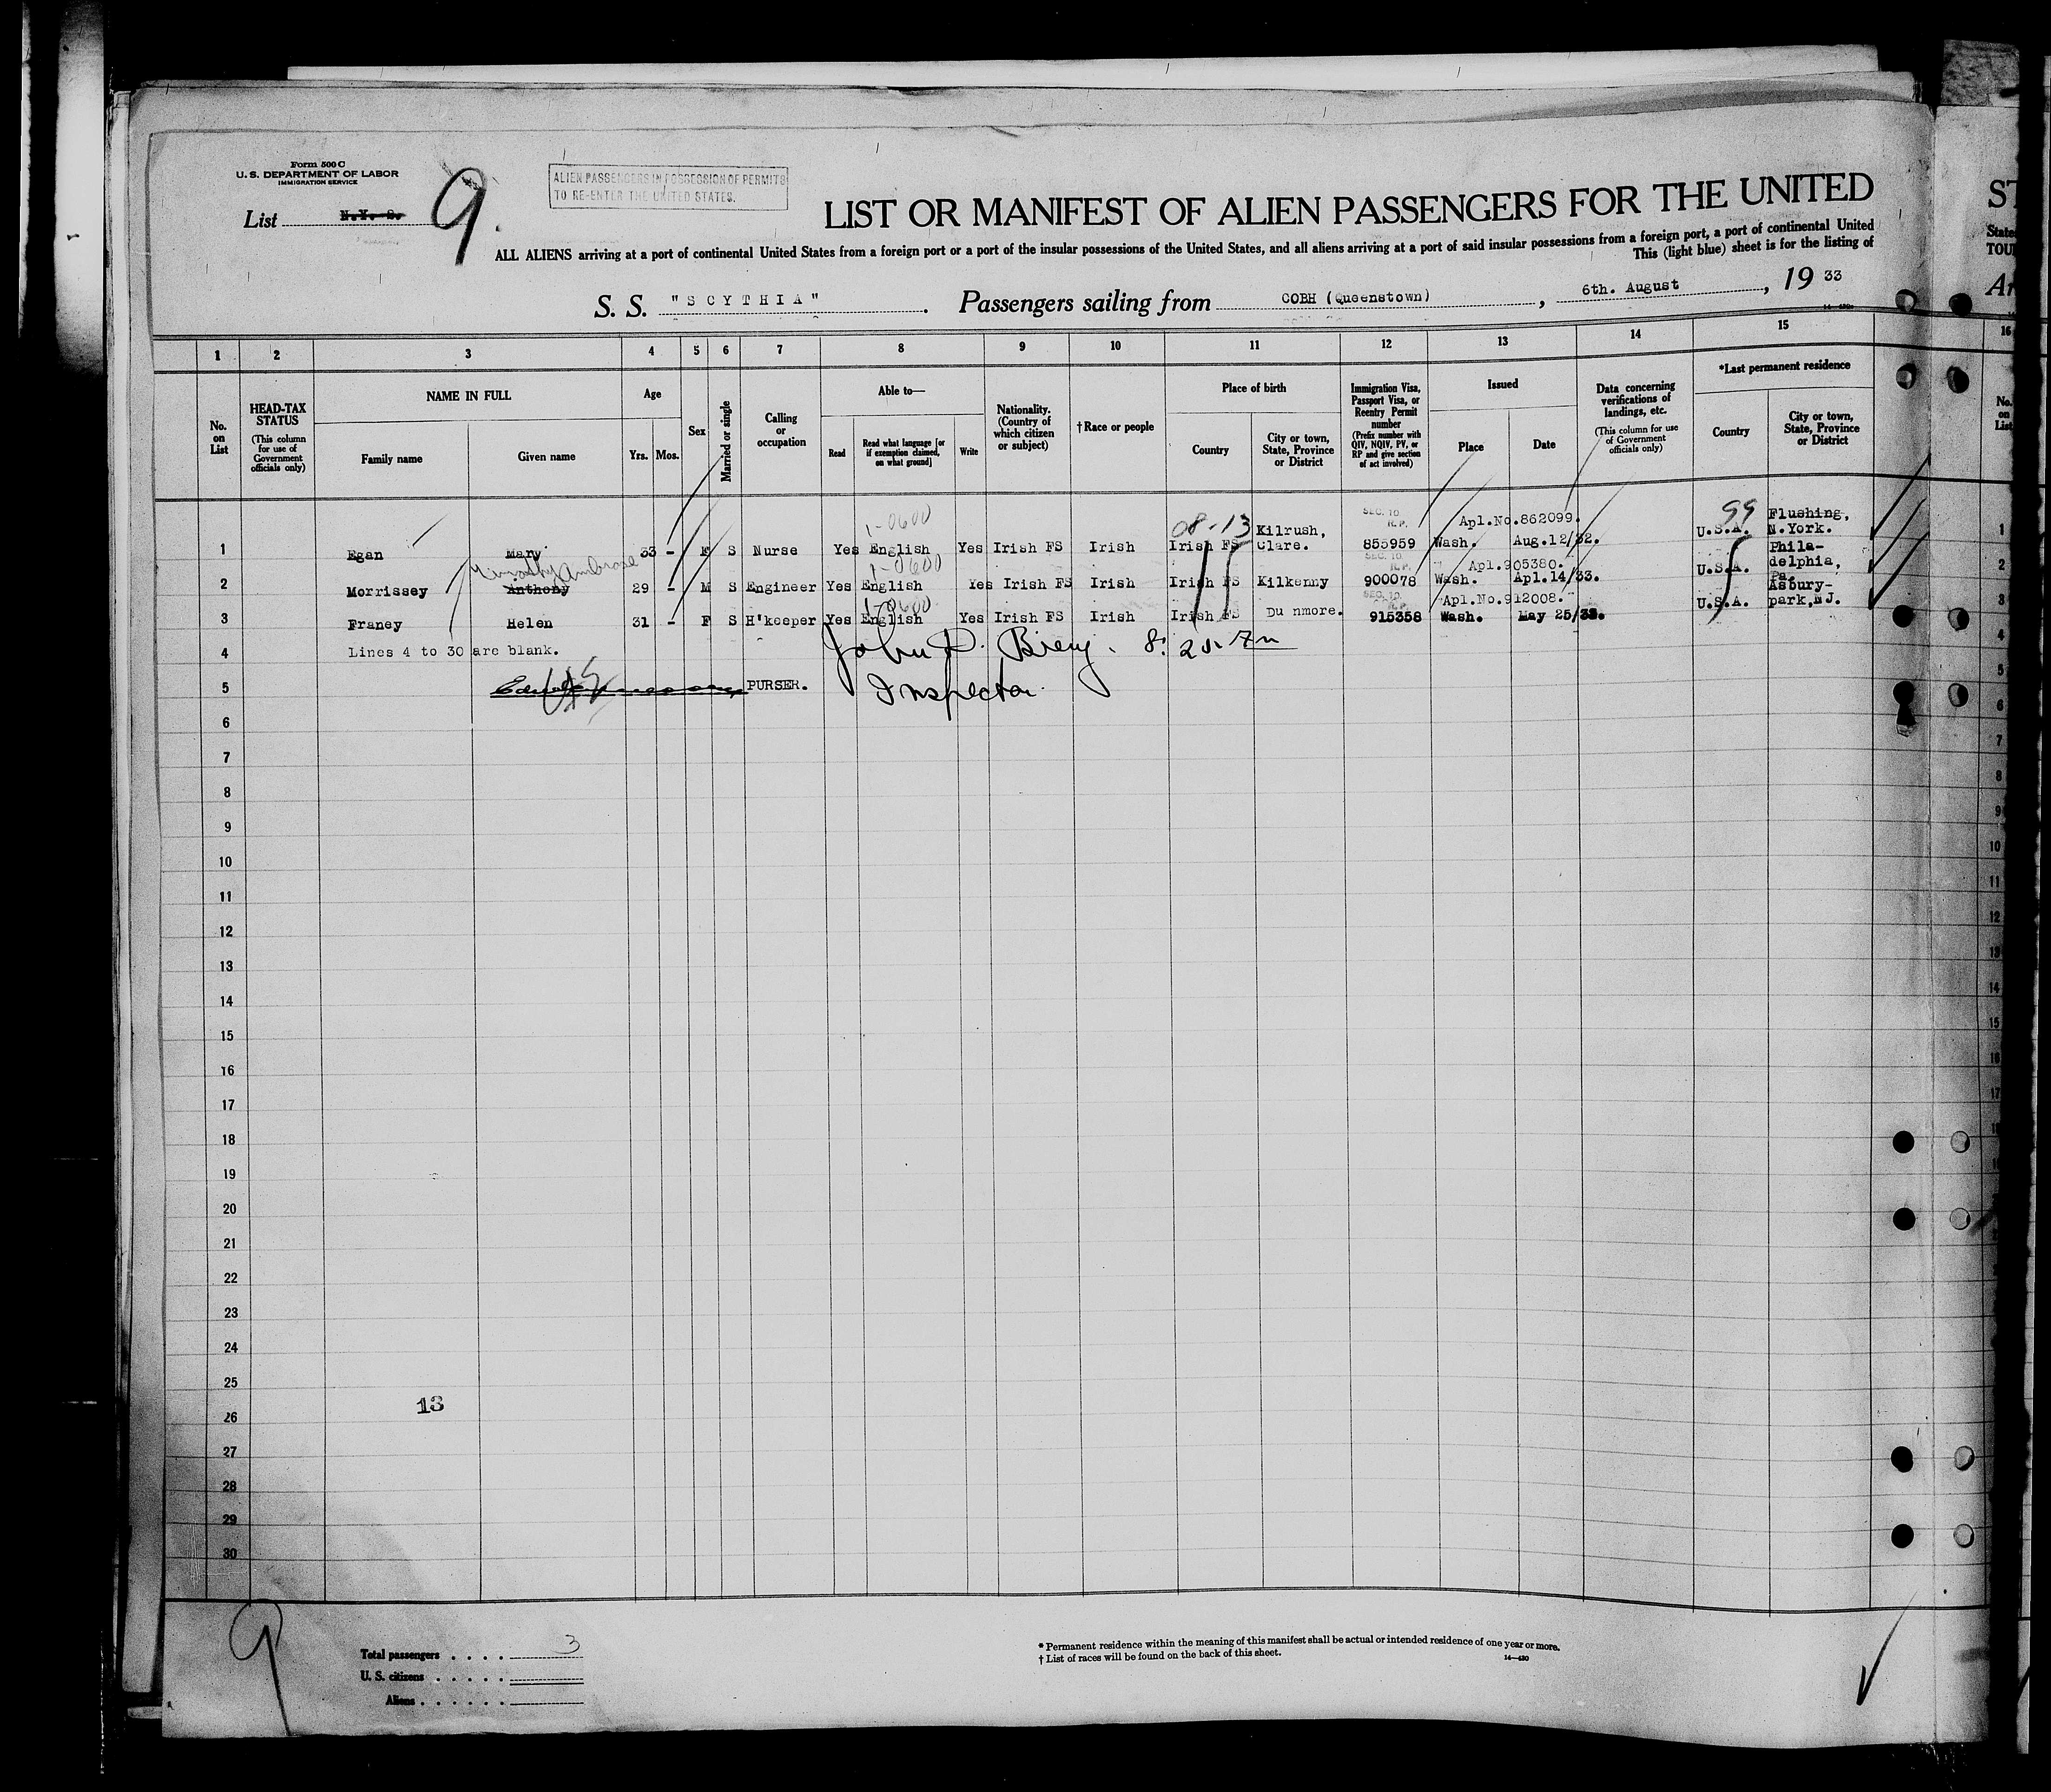 Form 500 C
U. S. DEPARTMENT OF LABOR
IMMIGRATION SERVICE
List N.Y. 2. 9.
ALIEN PASSENGERS IN POSSESSION OF PERMITS
TO RE-ENTER THE UNITED STATES.
LIST OR MANIFEST OF ALIEN PASSENGERS FOR THE UNITED
ST
ALL ALIENS arriving at a port of continental United States from a foreign port or a port of the insular possessions of the United States, and all aliens arriving at a port of said insular possessions from a foreign port, a port of continental United
State
This (light blue) sheet is for the listing of
TOU
S. S. "SCYTHIA". Passengers sailing from COBH (Queenstown), 6th. August, 1933
Ar
1 2 3 4 5 6 7 8 9 10 11 12 13 14 15 16
No. on List
HEAD-TAX STATUS (This column for use of Government officials only)
NAME IN FULL
Family name
Given name
Age
Yrs. Mos.
Sex
Married or single
Calling or occupation
Able to—
Read
Read what language [or if exemption claimed, on what ground]
Write
Nationality. (Country of which citizen or subject)
†Race or people
Place of birth
Country
City or town, State, Province or District
Immigration Visa, Passport Visa, or Reentry Permit number (Prefix number with QIV, NQIV, PV, or RP and give section of act involved)
Issued
Place
Date
Data concerning verifications of landings, etc. (This column for use of Government officials only)
*Last permanent residence
Country
City or town, State, Province or District
No. on List
1-0600 08-13 Kilrush, SEC. 10. R.P. Apl.No.862099. 99 Flushing,
U.S.A. N.York.
1 Egan Mary 33 - F S Nurse Yes English Yes Irish FS Irish Irish FS Clare. 855959 Wash. Aug.12/32. 1
Timothy Ambrose 1-0600 SEC. 10. R.P. Apl.905380. U.S.A. Phila-
delphia,
Pa.
2 Morrissey Anthony 29 - M S Engineer Yes English Yes Irish FS Irish Irish FS Kilkenny 900078 Wash. Apl.14/33. 2
1-0600 SEC. 10. R.P. Apl.No.912008. U.S.A. Asbury-
park,NJ.
3 Franey Helen 31 - F S H'keeper Yes English Yes Irish FS Irish Irish FS Dunmore. 915358 Wash. May 25/33. 3
4 Lines 4 to 30 are blank. John 4
5 PURSER. Inspector 5
6 6
7 7
8 8
9 9
10 10
11 11
12 12
13 13
14 14
15 15
16 16
17 17
18
19
20
21
22
23
24
25
13
26
27
28
29
30
9
Total passengers . . . . 3
U. S. citizens . . . . .
Aliens . . . . . .
* Permanent residence within the meaning of this manifest shall be actual or intended residence of one year or more.
† List of races will be found on the back of this sheet.
14—430